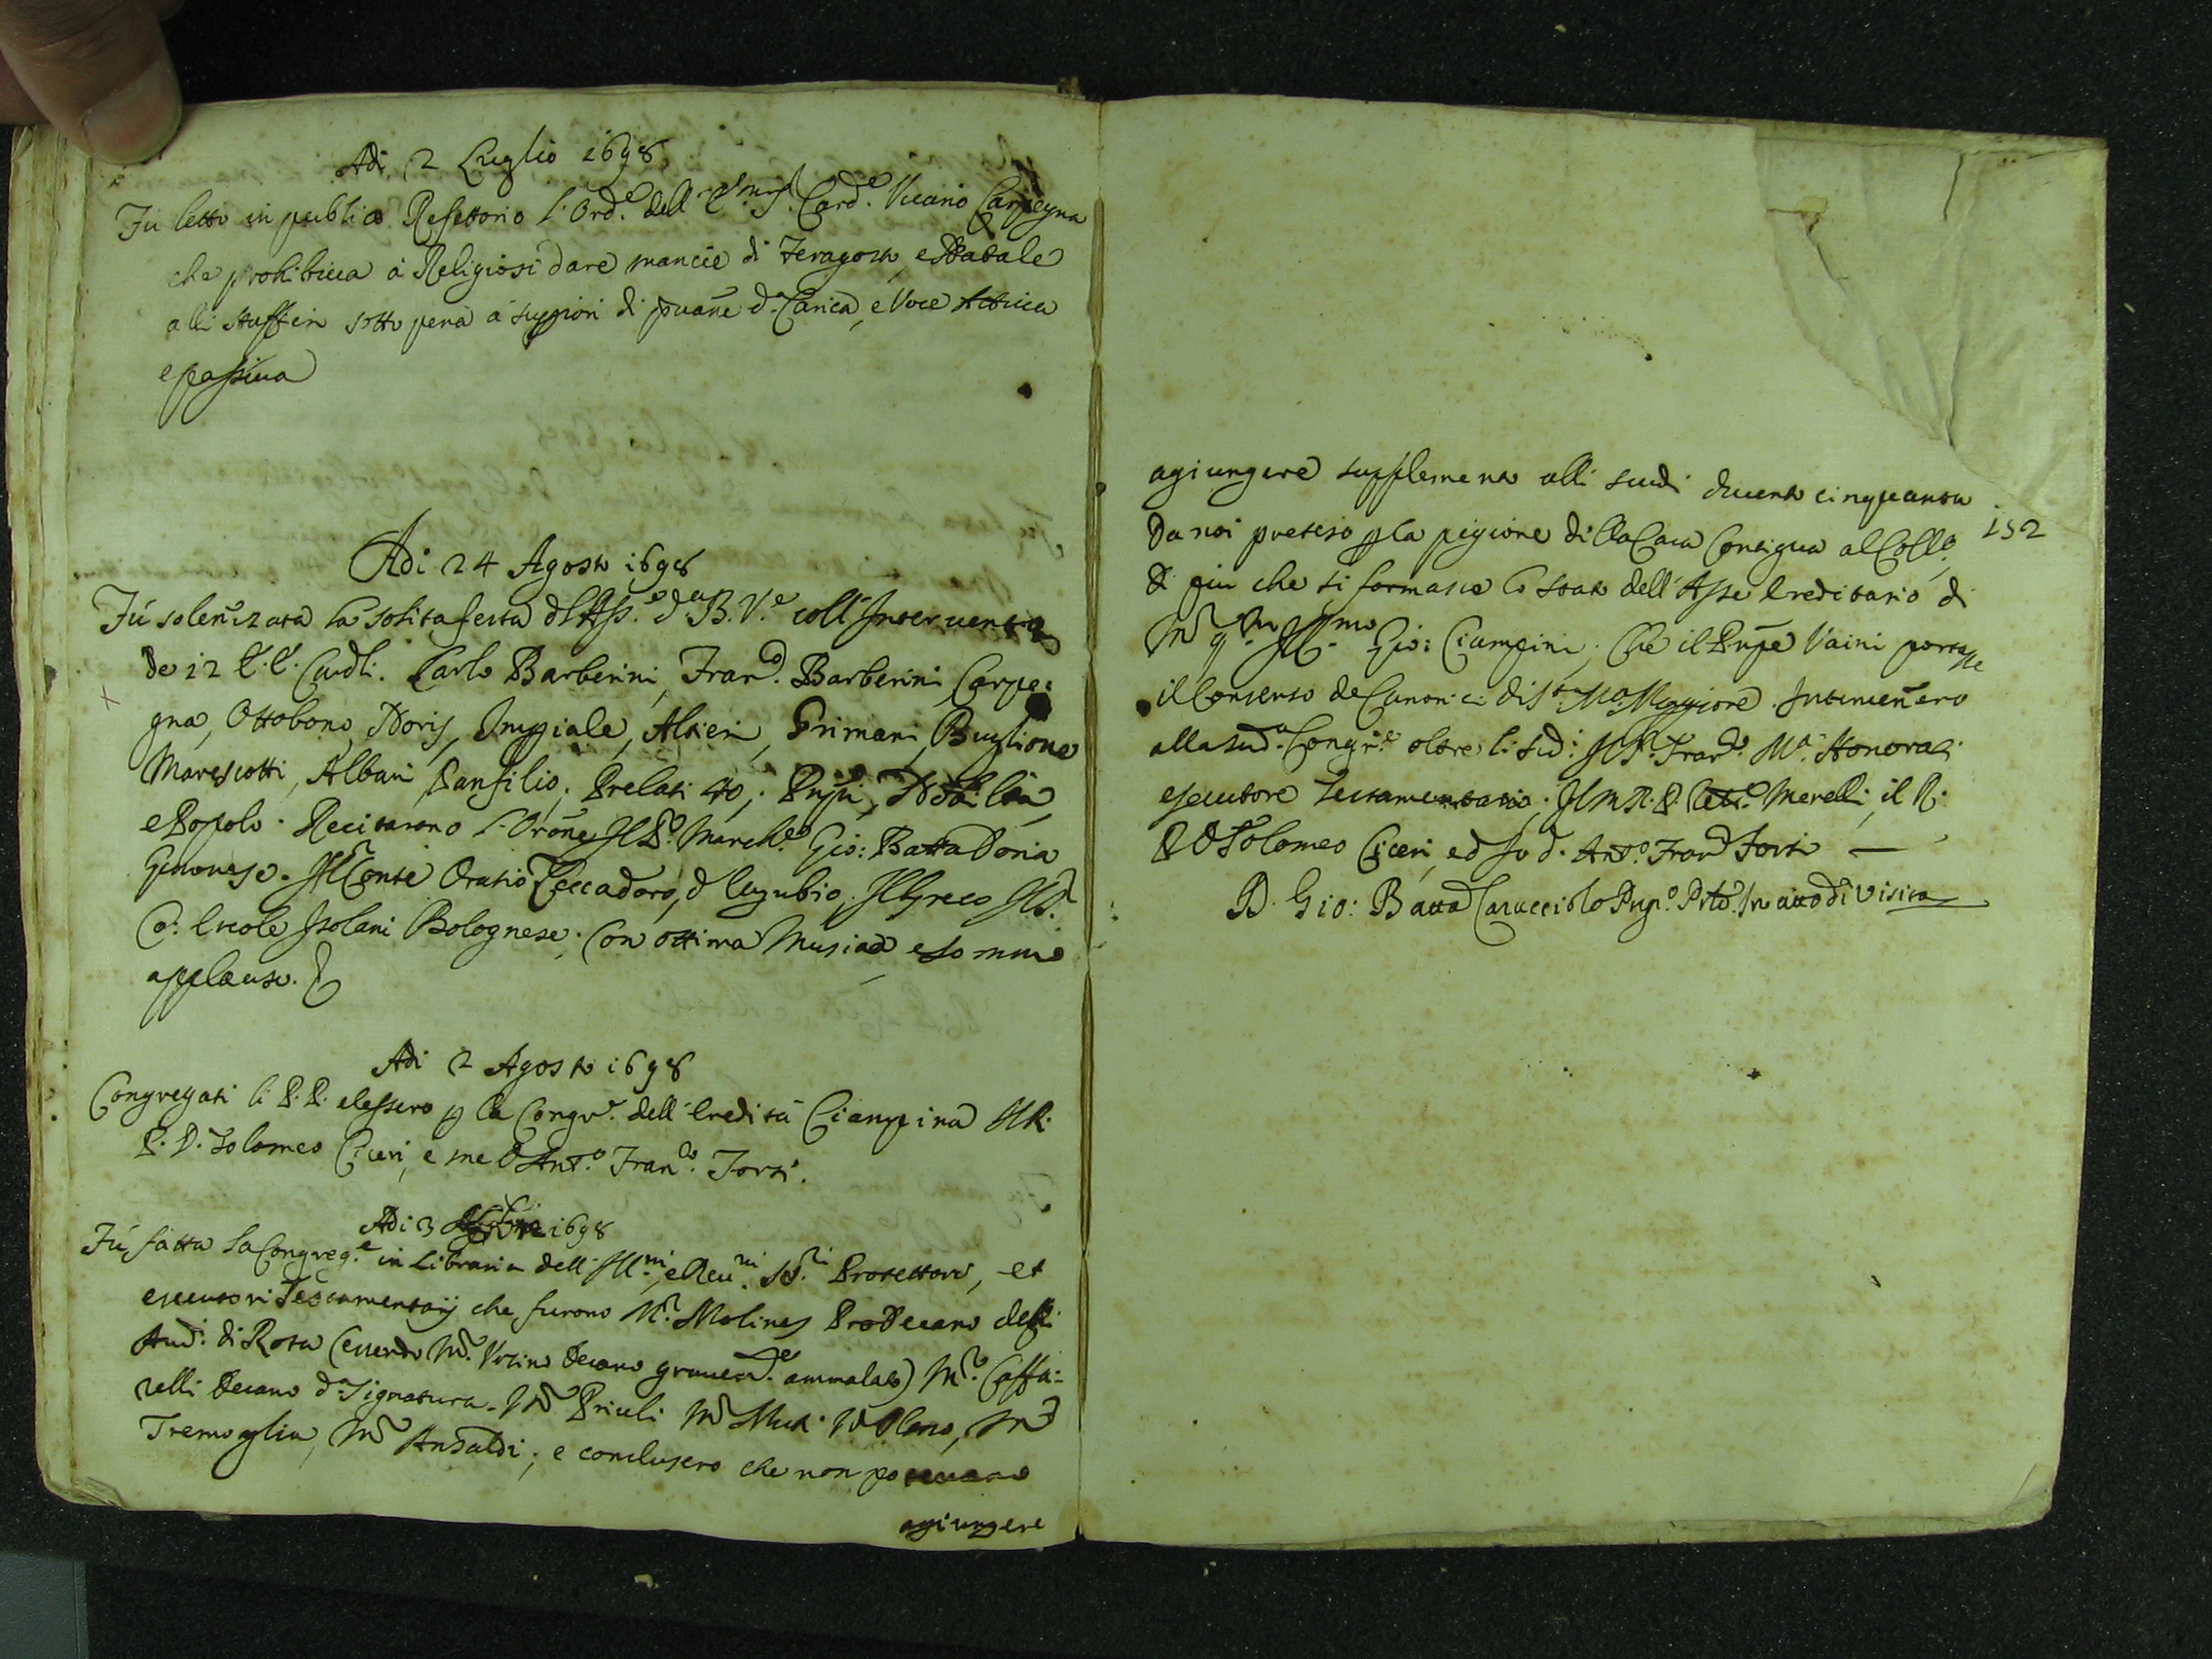 Adi 2 Luglio 1698
Fù letto in publico Refettorio l'Ord.e dell' Card.e Vicario Carpegna
che prohibiua à Religiosi dare mancie di Feragosto, e Natale
alli staffieri sotto pena à superiori di priuãne d.a Carica, e Voce Attiua
e passiua
Adi 24 Agosto 1698
Fù soleñizata la solita festa dl Ass.e d.a B. V.e coll' Interuento
de 12 E.E. Cardli. Carlo Barberini, Fran.co Barberini, Carpe:
gna, Ottobono, Noris, Imperiale, Altieri, Grimani, Buglione
Marescotti, Albani, Panfilio; Prelati 40; Prñpi, Nobiltà,
e Popolo. Recitarono l'Orõne Il S.r March.e Gio: Batta Doria
Genouese. Il Conte Oratio Toccadoro, d' Eugubio; Il Greco Il S.r
Co: Ercole Isolani Bolognese; Con ottima Musica e sommo
applauso.
Adi 2 Agosto 1698
Congregati li P.P. elessero p la Congr.e dell' Eredità Ciampina Il R.
P. D. Tolomeo Ciceri, e me D Ant.o Fran.co Forti.
Adi 3 1698
Fù fatta la Congreg.e in Libraria dell' Ill.mi, e Reu.mi SS.ri Protettori, et
esecutori Testamentarij che furono M.r Molines ProDecano delli
Aud.i di Rota (essendo M.r Vrsino Decano grauem.e ammalato) M.r Caffa:
relli Decano d.a Signatura. M.r Priuli M.r Muti M.r
Tremoglia, M.r Ansaldi; e conclusero che non poteuano
agiungere
agiungere supplemento alli scudi ducento cinquanta
152
Da noi preteso p la pigione della Casa Contigua al Coll.o
Di più che si formasse lo stato dell' Asse Ereditario di
M.r Gio: Ciampini; Che il Prñpe Vaini portasse
il Consenso de Canonici di S.ta M.a Maggiore. Interueñero
alla sud.a Congr.e oltre li sud.i Il P. Fran.co M.a Honorati
esecutore Testamentario; Il M.R.P. Merelli, il R.
P D Tolomeo Ciceri, ed Io d. Ant.o Fran.co Forti —
D. Gio: Batta Caracciolo Prep.o In atto di Visita